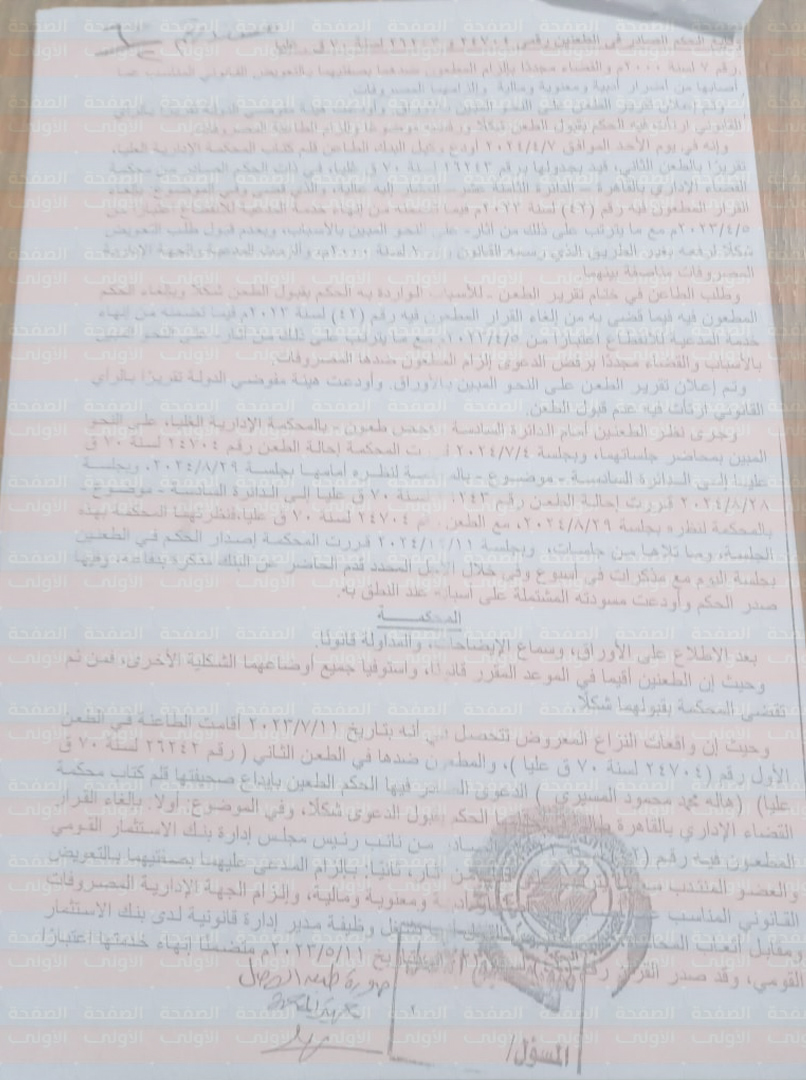 الحكم الصادر في الطعنين رقمي ٢٤٧٠٤ و ٢٦٢٤٣ لسنة ٧٠ ق عليا
رقم ٧ لسنة ٢٠٠٠م والقضاء مجددًا بإلزام المطعون ضدهما بصفتيهما بالتعويض القانوني المناسب عما
أصابها من أضرار أدبية ومعنوية ومالية والزامهما المصروفات.
وتم إعلان تقرير الطعن على النحو المبين بالأوراق. وأودعت هيئة مفوضي الدولة تقريرًا بالرأي
القانوني ارتأت فيه الحكم بقبول الطعن شكلًا ورفضه موضوعًا وإلزام الطاعنة المصروفات.
وإنه في يوم الأحد الموافق ٢٠٢٤/٤/٧ أودع وكيل البنك الطاعن قلم كتاب المحكمة الإدارية العليا،
تقريرًا بالطعن الثاني، قيد بجدولها برقم لسنة ٧٠ ق عليا، في ذات الحكم الصادر من محكمة
القضاء الإداري بالقاهرة – الدائرة الثامنة عشر – المشار إليه عاليه، والذي قضى وفي الموضوع بإلغاء
القرار المطعون فيه رقم (٤٢) لسنة ٢٠٢٣م فيما تضمنه من إنهاء خدمة المدعية للانقطاع اعتبارًا من
٢٠٢٣/٤/٥م مع ما يترتب على ذلك من آثار- على النحو المبين بالأسباب، وبعدم قبول طلب التعويض
شكلًا لرفعه بغير الطريق الذي رسمه القانون لسنة ٢٠٠٠م، والزمت المدعية والجهة الإدارية
المصروفات مناصفة بينهما.
وطلب الطاعن في ختام تقرير الطعن - للأسباب الواردة به الحكم بقبول الطعن شكلًا وبإلغاء الحكم
المطعون فيه فيما قضى به من إلغاء القرار المطعون فيه رقم (٤٢) لسنة ٢٠٢٣م فيما تضمنه من إنهاء
خدمة المدعية للانقطاع اعتبارًا من ٢٠٢٣/٤/٥، مع ما يترتب على ذلك من آثار- على النحو المبين
بالأسباب والقضاء مجددًا برفض الدعوى إلزام المطعون ضدها المصروفات.
وتم إعلان تقرير الطعن على النحو المبين بالأوراق. وأودعت هيئة مفوضي الدولة تقريرًا بالرأي
القانوني ارتأت فيه عدم قبول الطعن.
وجرى نظر الطعنين أمام الدائرة السادسة فحص طعون - بالمحكمة الإدارية العليا، على النحو
المبين بمحاضر جلساتهما، وبجلسة ٢٠٢٤/٧/٤ المحكمة إحالة الطعن رقم ٢٤٧٠٤ لسنة ٧٠ ق
عليا إلى الدائرة السادسة - موضوع - لنظره أمامها بجلسة ٢٠٢٤/٨/٢٩، وبجلسة
٢٠٢٤/٨/٢٨ قررت إحالة الطعن رقم لسنة ٧٠ ق عليا إلى الدائرة السادسة - موضوع -
بالمحكمة لنظره بجلسة ٢٠٢٤/٨/٢٩، مع الطعن رقم ٢٤٧٠٤ لسنة ٧٠ ق عليا، فنظرتهما المحكمة بهذه
الجلسة، وما تلاها من جلسات، وبجلسة قررت المحكمة إصدار الحكم في الطعنين
بجلسة اليوم مع مذكرات في أسبوع وفي خلال الأجل المحدد قدم الحاضر عن البنك مذكرة بدفاعه، وفيها
صدر الحكم وأودعت مسودته المشتملة على أسبابه عند النطق به.
المحكمة
بعد الاطلاع على الأوراق، وسماع الإيضاحات، والمداولة قانونًا.
وحيث إن الطعنين أقيما في الموعد المقرر قانونًا، واستوفيا جميع أوضاعهما الشكلية الأخرى، فمن ثم
تقضي المحكمة بقبولهما شكلًا
وحيث إن واقعات النزاع المعروض تتحصل في أنه بتاريخ ٢٠٢٣/٧/١١ أقامت الطاعنة في الطعن
الأول رقم (٢٤٧٠٤ لسنة ٧٠ ق عليا)، والمطعون ضدها في الطعن الثاني (رقم ٢٦٢٤٣ لسنة ٧٠ ق
عليا) (هاله محمد محمود المسيري) الدعوى الصادر فيها الحكم الطعين بإيداع صحيفتها قلم كتاب محكمة
القضاء الإداري بالقاهرة الحكم بقبول الدعوى شكلًا، وفي الموضوع: أولًا: بإلغاء القرار
المطعون فيه رقم الصادر من نائب رئيس مجلس إدارة بنك الاستثمار القومي
والعضو المنتدب من آثار، ثانيًا: بإلزام المدعى عليهما بصفتيهما بالتعويض
القانوني المناسب ومعنوية ومالية، وإلزام الجهة الإدارية المصروفات
ومقابل أتعاب المحاماة تشغل وظيفة مدير إدارة قانونية لدى بنك الاستثمار
القومي، وقد صدر القرار بتاريخ ٢٠٢٣/٥/١١م متضمنًا إنهاء خدمتها اعتبارًا
صورة طبق الأصل
المسئول/
الصفحة الأولى